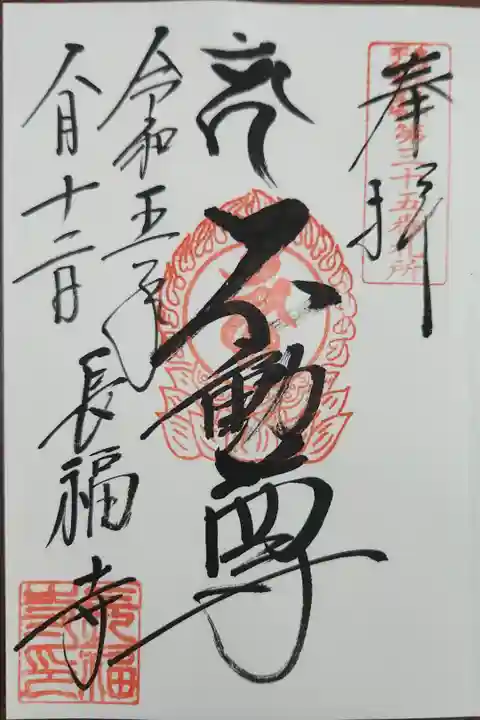 奉拝
第三十五番札所
不動尊
令和五年
八月十二日
長福寺